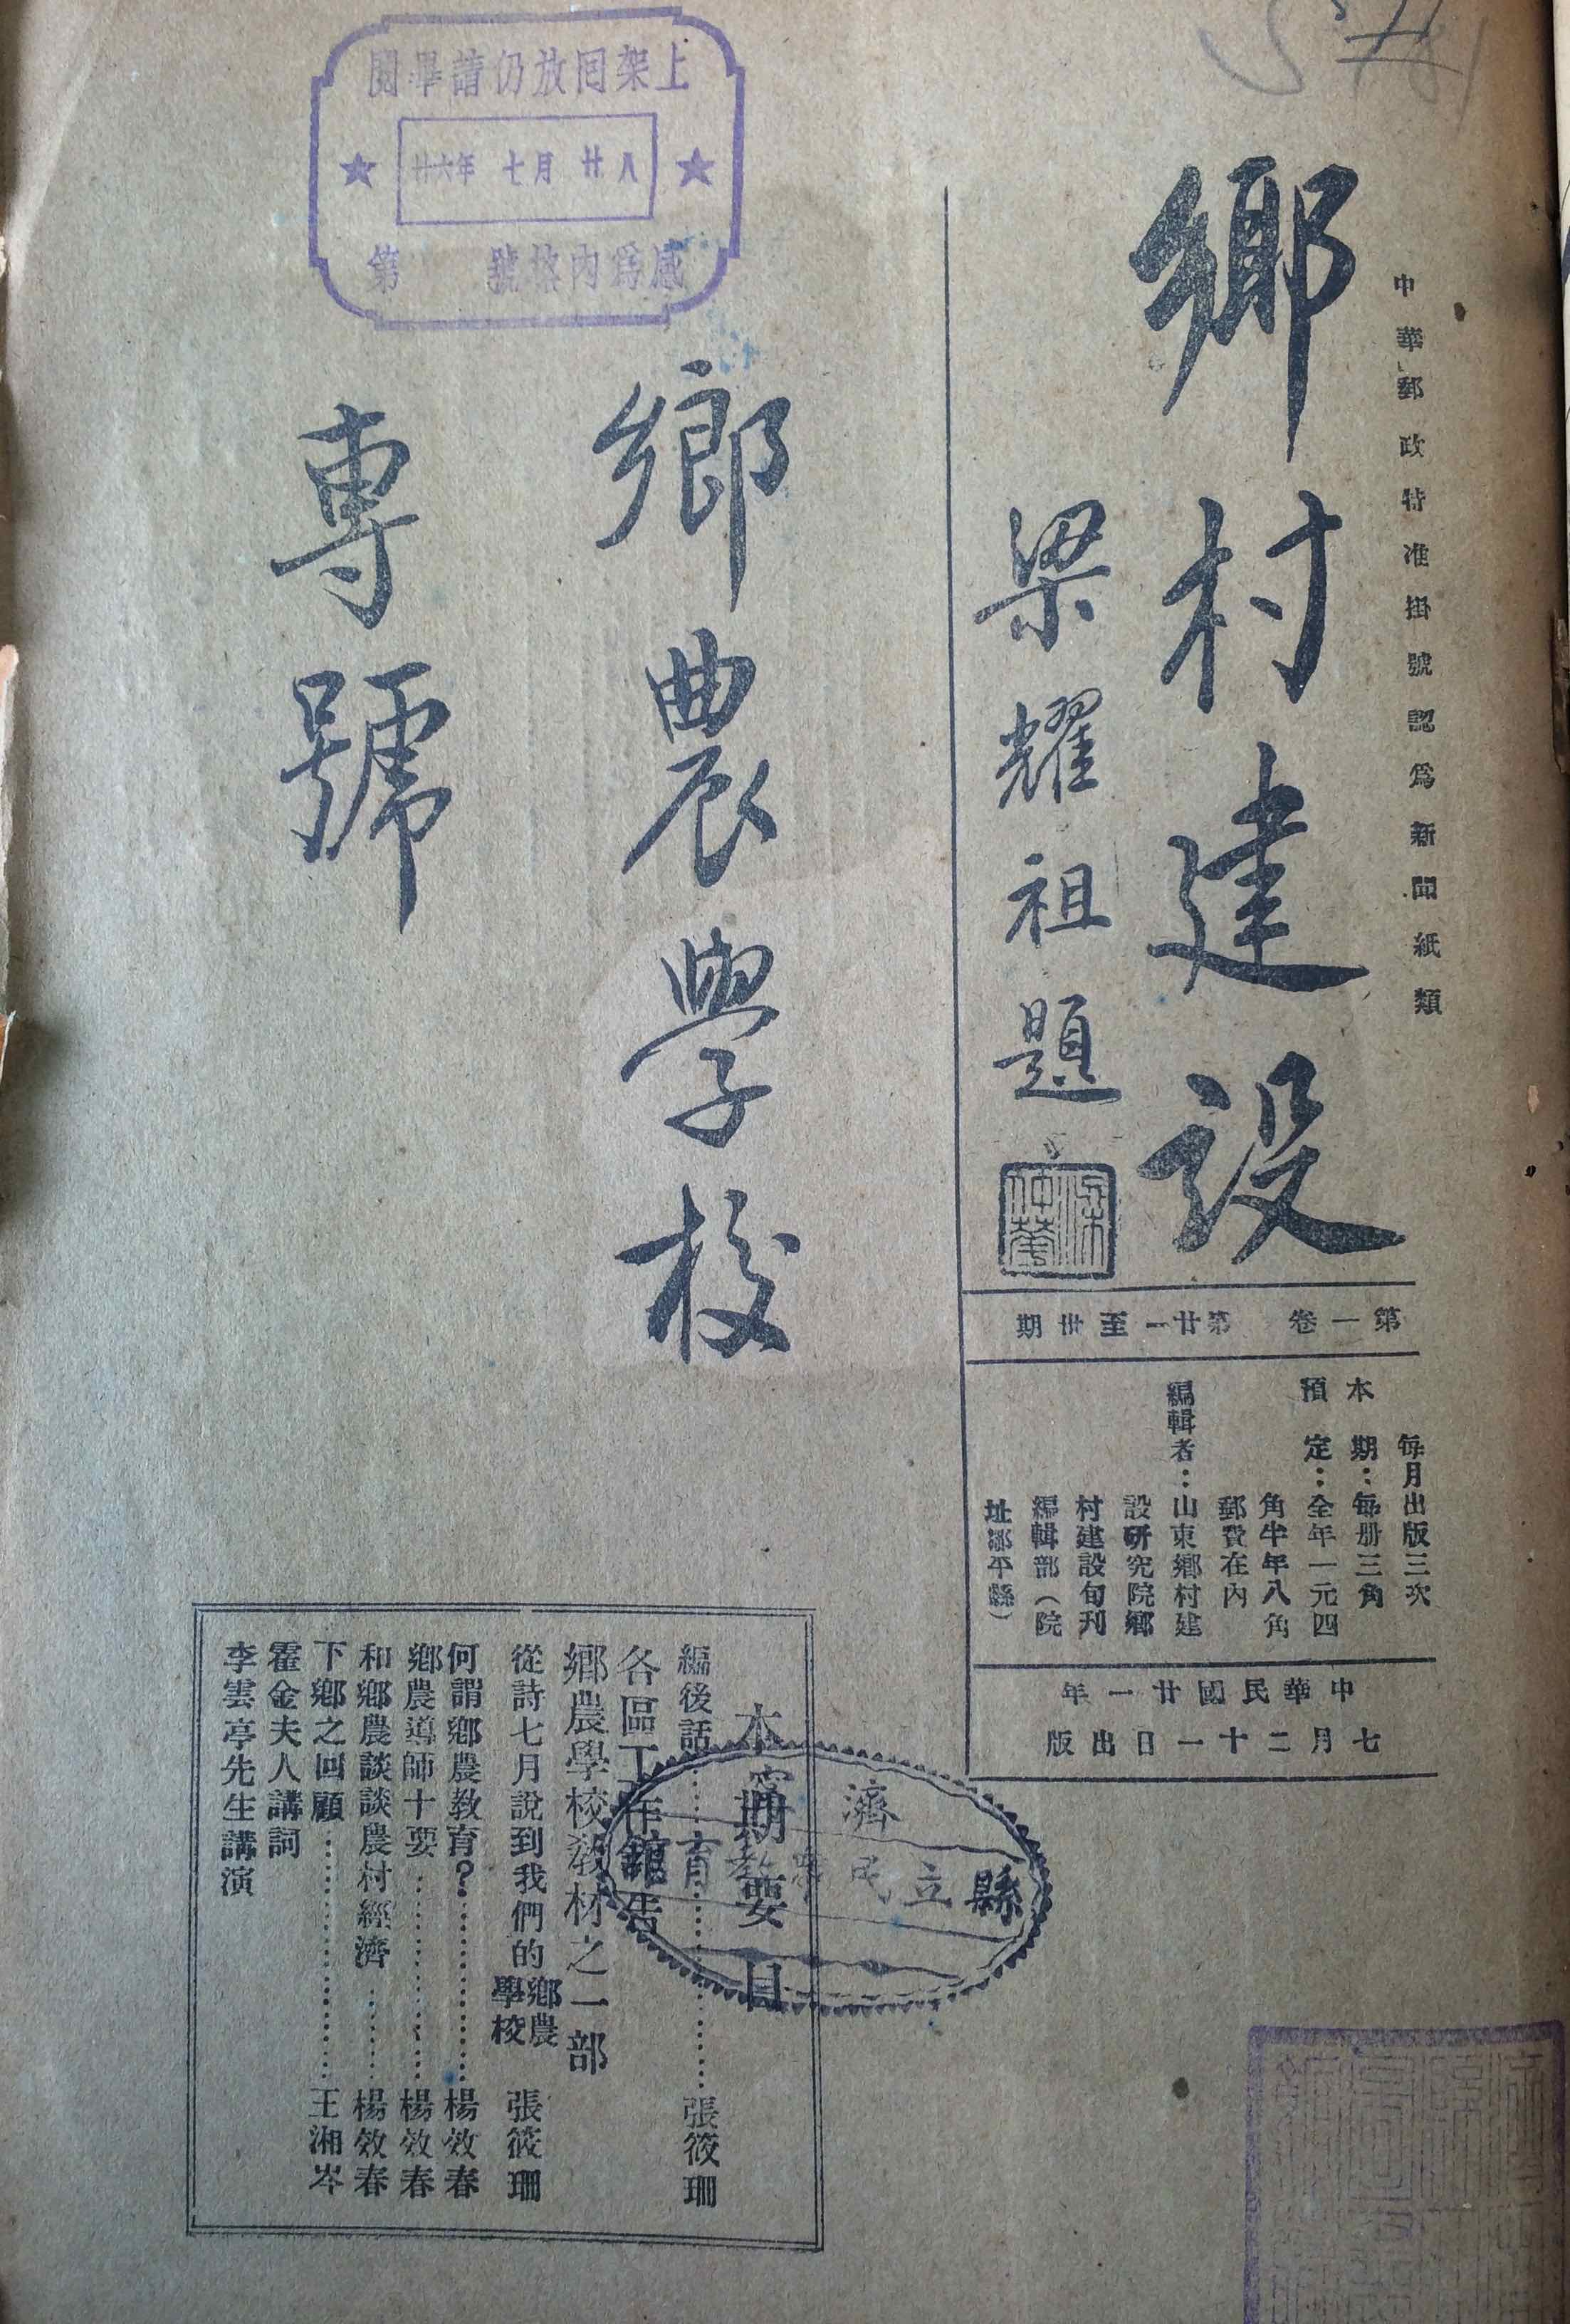 中華郵政特准掛號認為新聞紙類
鄉村建設
梁耀祖題
第一卷　第廿一至卅期
每月出版三次
本期：每册三角
預定：全年一元四
角半年八角
郵費在內
編輯者：山東鄉村建
設研究院鄉
村建設旬刊
編輯部（院
址鄒平縣）
中華民國廿一年
七月二十一日出版
鄉農學校
專號
本期要目
編後話……張筱珊
各區工作報告
鄉農學校教材之一部
從詩七月說到我們的鄉農學校　張筱珊
何謂鄉農教育？……楊效春
鄉農導師十要……楊效春
和鄉農談談農村經濟……楊效春
下鄉之回顧……王湘岑
霍金夫人講詞
李雲亭先生講演
閱畢請仍放回架上
廿六年 七月 廿八
第　　號
濟寧
縣立民眾教育館